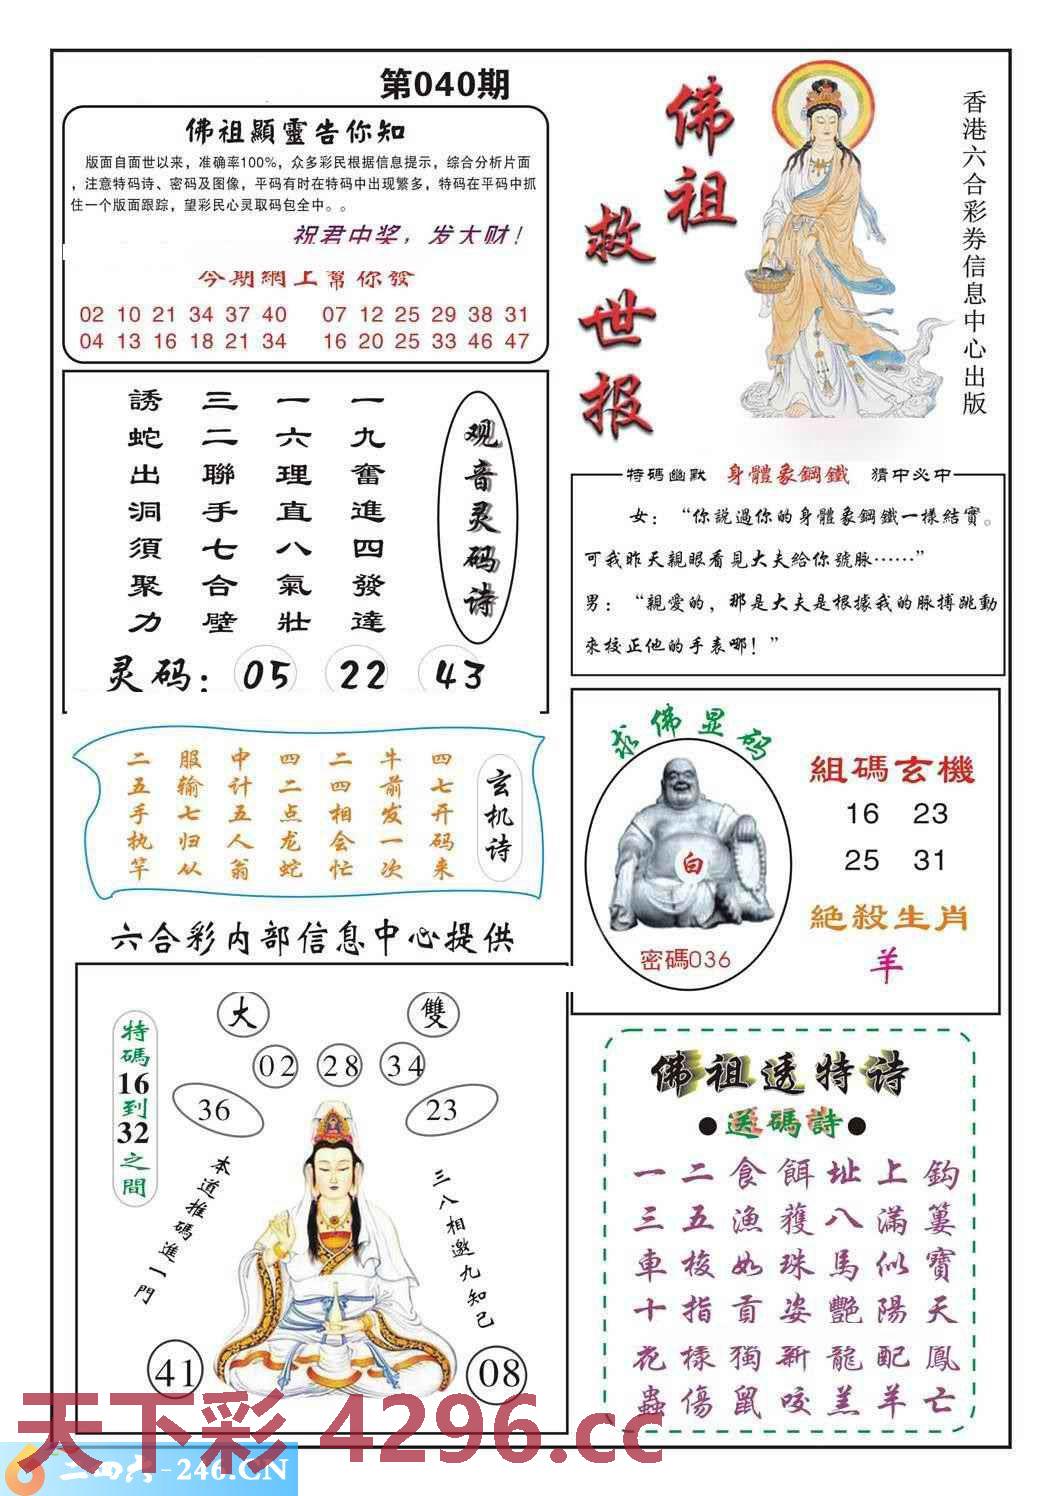 第040期
佛祖顯靈告你知
版面自面世以来，准确率100%，众多彩民根据信息提示，综合分析片面
，注意特码诗、密码及图像，平码有时在特码中出现繁多，特码在平码中抓
住一个版面跟踪，望彩民心灵取码包全中。。
祝君中奖，发大财！
今期網上幫你發
02 10 21 34 37 40 07 12 25 29 38 31
04 13 16 18 21 34 16 20 25 33 46 47
佛祖
救世报
香港六合彩券信息中心出版
观音灵码诗
一九奮進四發達
一六理直八氣壯
三二聯手七合壁
誘蛇出洞須聚力
灵码：05 22 43
特碼幽默 身體象鋼鐵 猜中必中
女：“你説過你的身體象鋼鐵一樣結實。
可我昨天親眼看見大夫給你號脉……”
男：“親愛的，那是大夫是根據我的脉搏跳動
來校正他的手表哪！”
玄机诗
四七开码来
牛前发一次
二四相会忙
四二点龙蛇
中计五人翁
服输七归从
二五手执竿
求佛显码
白
密碼036
組碼玄機
16 23
25 31
絶殺生肖
羊
六合彩内部信息中心提供
特碼16到32之間
大 雙
02 28 34
36 23
本道推碼進一門
三八相邀九知己
41 08
佛祖透特诗
●送碼詩●
一二食餌址上鈎
三五漁獲八滿簍
車梭如珠馬似寶
十指貢姿艷陽天
花樣獨新龍配鳳
蟲傷鼠咬羔羊亡
天下彩 4296.cc
二四六-246.CN